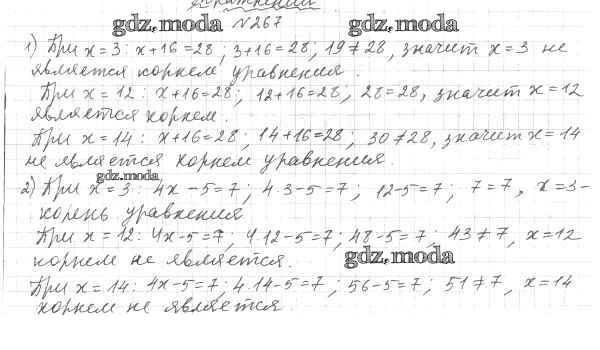 gdz.moda №267 gdz.moda
1) При x=3: x+16=28; 3+16=28; 19≠28, значит x=3 не
является корнем уравнения.
При x=12: x+16=28; 12+16=28; 28=28, значит x=12
является корнем.
При x=14: x+16=28; 14+16=28; 30≠28, значит x=14
не является корнем уравнения.
gdz.moda
2) При x=3: 4x-5=7; 4·3-5=7; 12-5=7; 7=7, x=3-
корень уравнения
При x=12: 4x-5=7; 4·12-5=7; 48-5=7; 43≠7, x=12
корнем не является.
gdz.moda
При x=14: 4x-5=7; 4·14-5=7; 56-5=7; 51≠7, x=14
корнем не является.